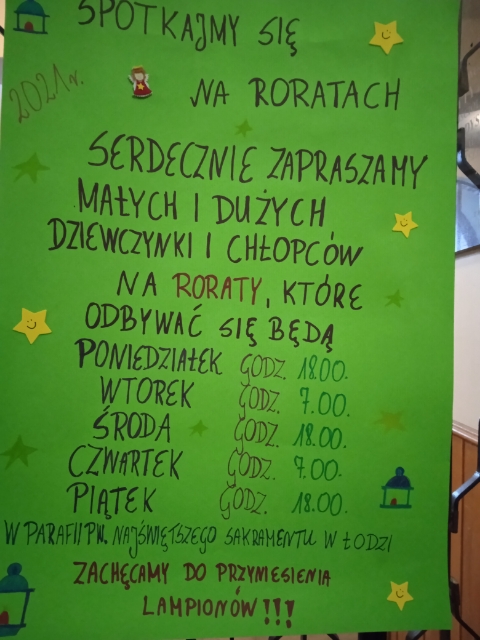 SPOTKAJMY SIĘ
2021r.
NA RORATACH
SERDECZNIE ZAPRASZAMY
MAŁYCH I DUŻYCH
DZIEWCZYNKI I CHŁOPCÓW
NA RORATY, KTÓRE
ODBYWAĆ SIĘ BĘDĄ
PONIEDZIAŁEK GODZ. 18.00.
WTOREK GODZ. 7.00.
ŚRODA GODZ. 18.00.
CZWARTEK GODZ. 7.00.
PIĄTEK GODZ. 18.00.
W PARAFII PW. NAJŚWIĘTSZEGO SAKRAMENTU W ŁODZI
ZACHĘCAMY DO PRZYMIESIENIA
LAMPIONÓW!!!